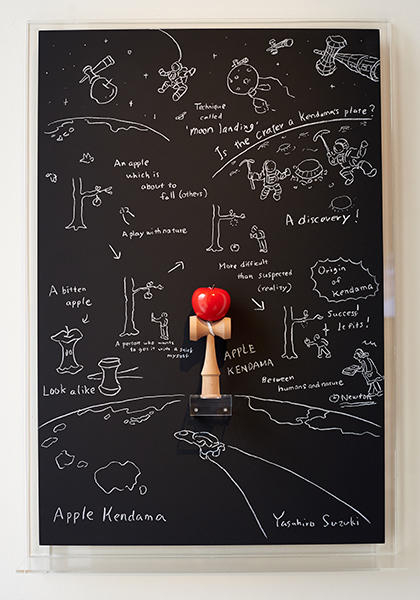 Technique
called
'moon landing'
Is the crater a Kendama's plate?
An apple
which is
about to
fall (others)
A play with nature
A discovery!
More difficult
than suspected
(reality)
Origin
of
Kendama
A bitten
apple
A person who wants
to get it with a stick
myself
Success!
It fits!
Look alike
APPLE
KENDAMA
Between
humans and nature
Newton
Apple Kendama
Yasuhiro Suzuki